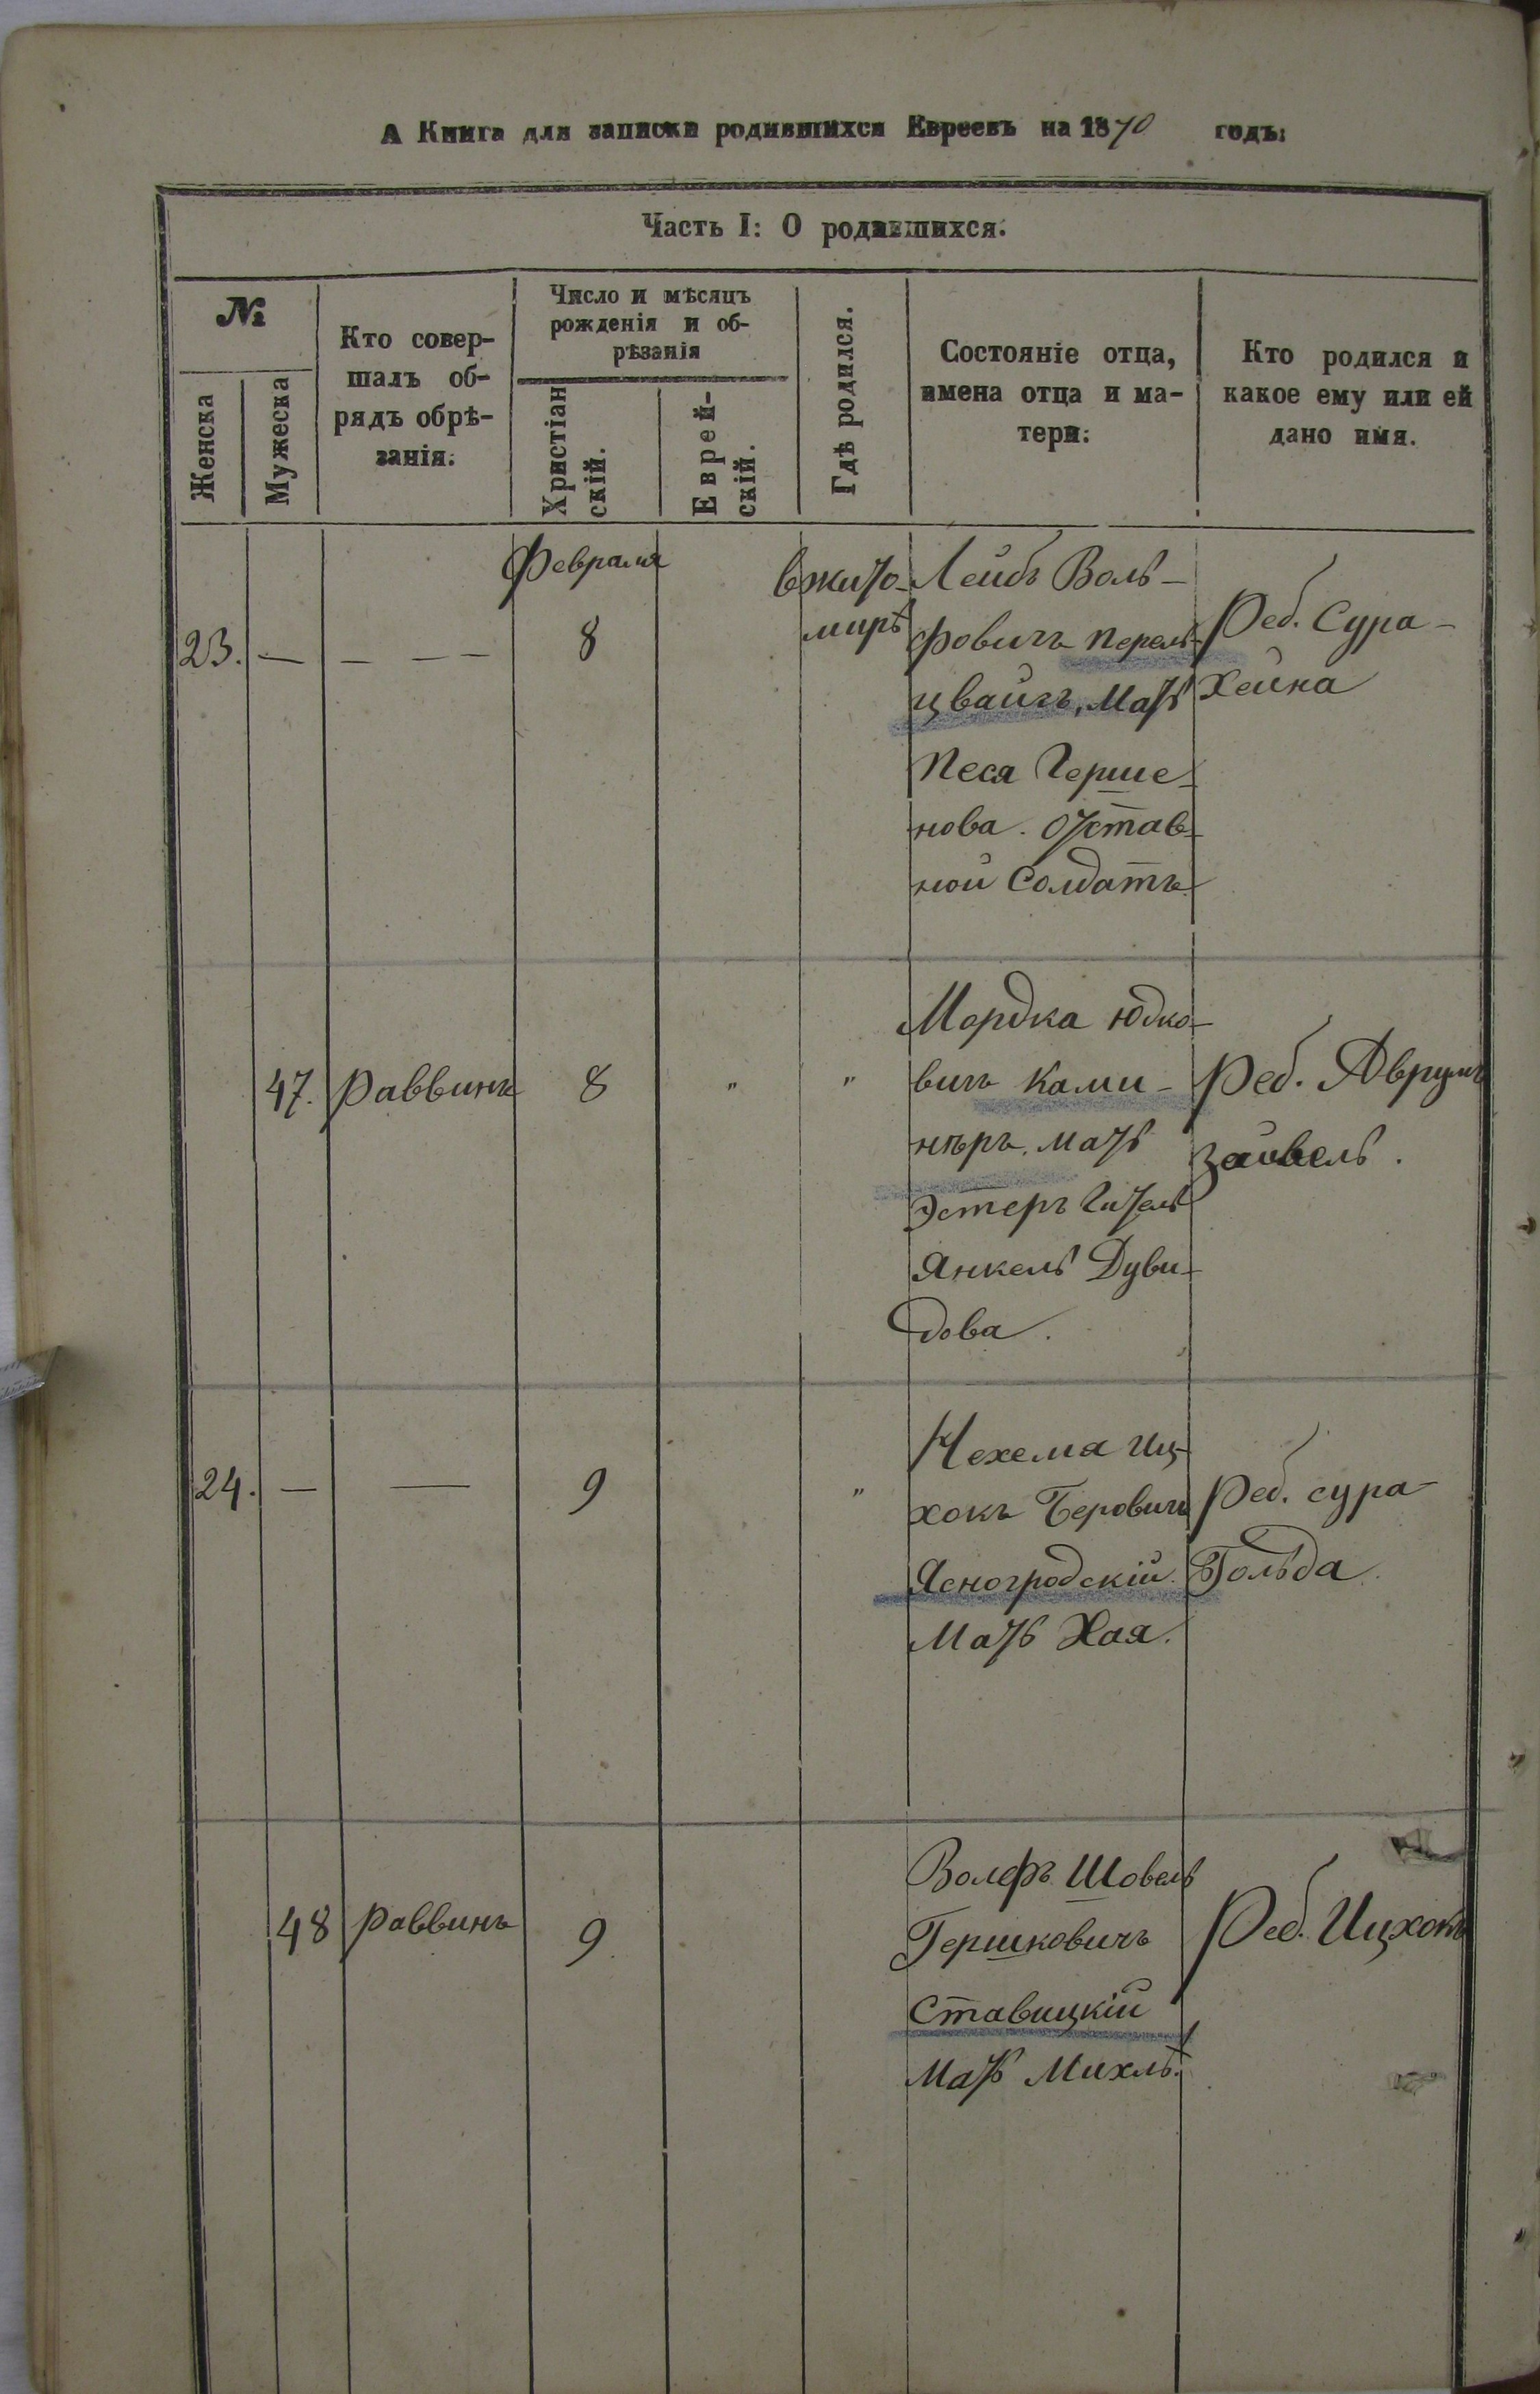 А Книга для записки родившихся Евреевъ на 1870 годъ:
Часть I: О родившихся.
№
Женска
Мужеска
Кто совер-
шалъ об-
рядъ обрѣ-
занія.
Число и мѣсяцъ
рожденія и об-
рѣзанія
Христіан
скій.
Еврей-
скій.
Гдѣ родился.
Состояніе отца,
имена отца и ма-
тери.
Кто родился и
какое ему или ей
дано имя.
23. — — — —
Февраля
8
вжито-
мирѣ
Лейбъ Воль-
фовичъ Перель-
цвайгъ, Мать
Песя Герше-
нова. Отстав-
ной Солдатъ
Реб. Сура-
Хейна
47. Раввинъ 8 " "
Мордка Юдко-
вичъ Ками-
неръ, мать
Эстеръ Гитель
Янкель Дуви-
дова.
Реб. Аврумъ
Зайвель.
24. — — 9 "
Нехемя Иц-
хокъ Беровичъ
Ясногродскій.
Мать Хая.
Реб. сура-
Гольда.
48 Раввинъ 9.
Волфъ Шовель
Гершковичъ
Ставицкій
Мать Михля.
Реб. Ицхокъ